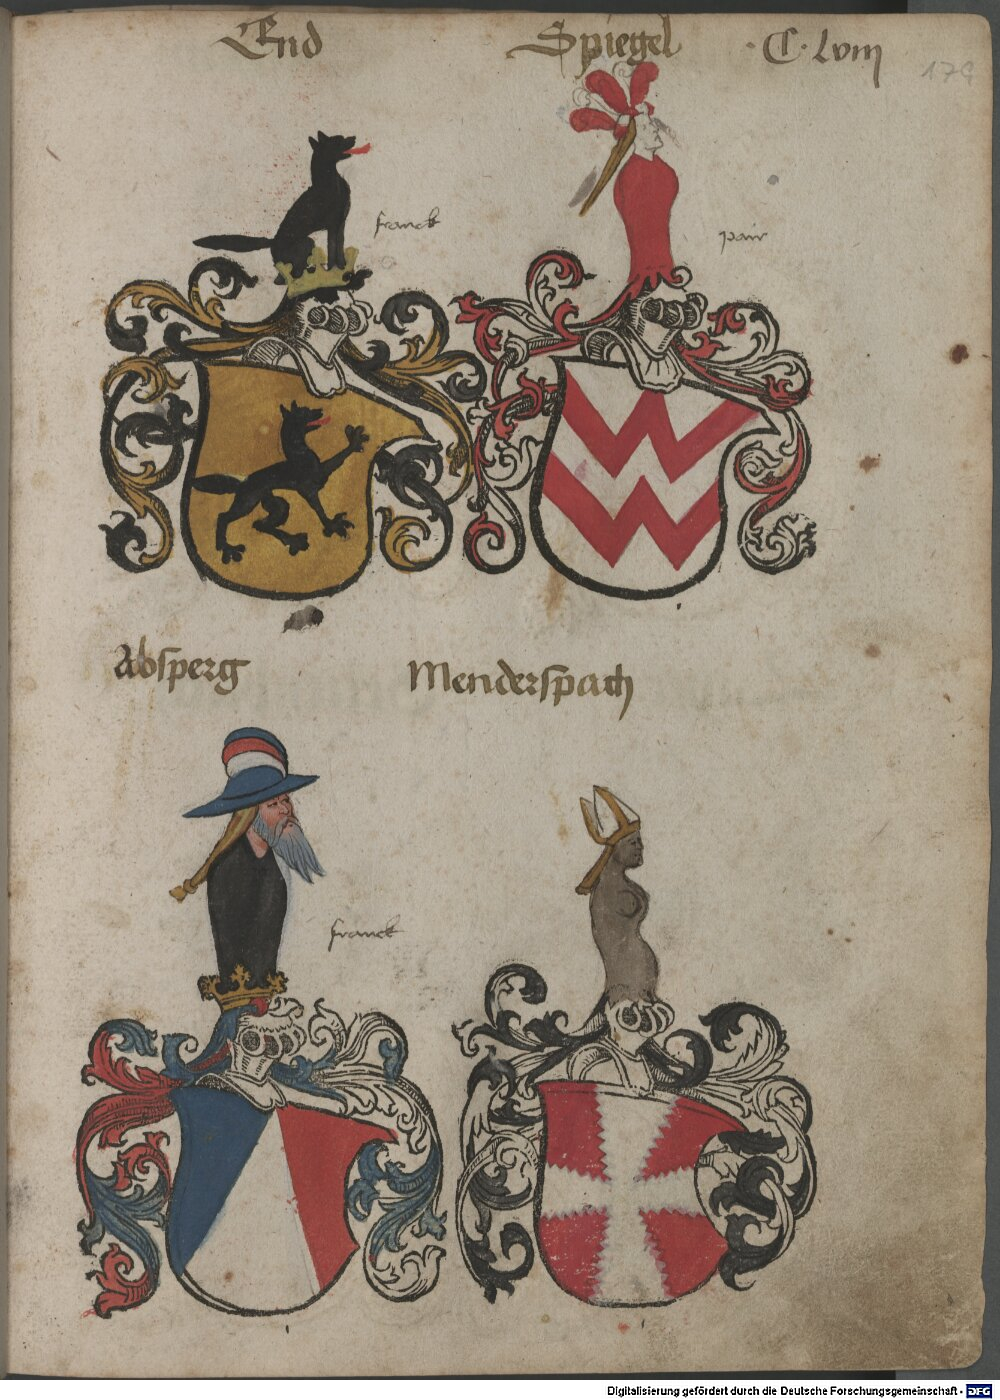 End
Spiegel
· C · lviii
179
franck
pair
Absperg
Menderspach
franck
Digitalisierung gefördert durch die Deutsche Forschungsgemeinschaft - DFG